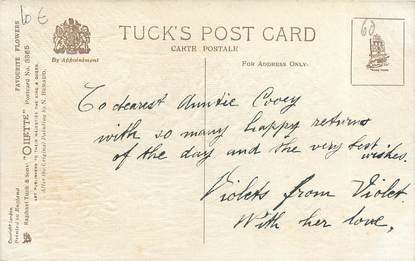 10 €
TUCK'S POST CARD
CARTE POSTALE
By Appointment
FOR ADDRESS ONLY:
60
FAVOURITE FLOWERS
"OILETTE" Postcard No. 3365
Raphael Tuck & Sons'
After the Original Painting by
Copyright London.
Printed in
To dearest Auntie
with so many happy returns
of the day and the very best
wishes.
Violets from Violet.
With her love,